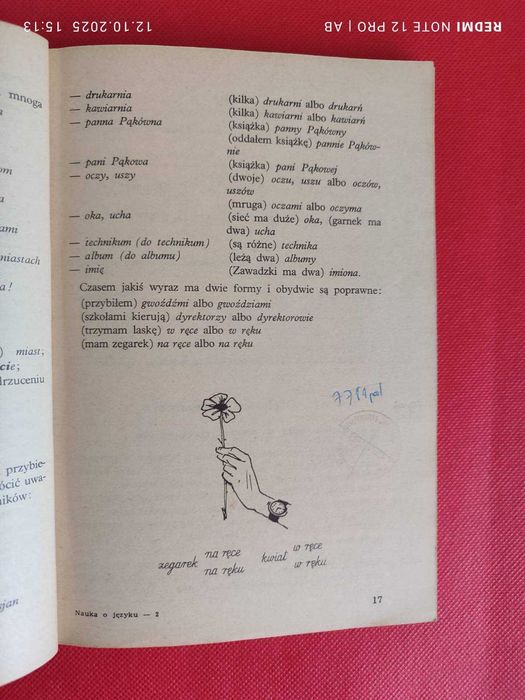 REDMI NOTE 12 PRO | AB
12.10.2025 15:13
mnoga
a
om
a
ami
miastach
a!
) miast;
cie;
drzuceniu
przybie-
ócić uwa-
ników:
gjan
— drukarnia (kilka) drukarni albo drukarń
— kawiarnia (kilka) kawiarni albo kawiarń
— panna Pąkówna (książka) panny Pąkówny
(oddałem książkę) pannie Pąków-
nie
— pani Pąkowa (książka) pani Pąkowej
— oczy, uszy (dwoje) oczu, uszu albo oczów,
uszów
(mruga) oczami albo oczyma
— oka, ucha (sieć ma duże) oka, (garnek ma
dwa) ucha
— technikum (do technikum) (są różne) technika
— album (do albumu) (leżą dwa) albumy
— imię (Zawadzki ma dwa) imiona.
Czasem jakiś wyraz ma dwie formy i obydwie są poprawne:
(przybiłem) gwoźdźmi albo gwoździami
(szkołami kierują) dyrektorzy albo dyrektorowie
(trzymam laskę) w ręce albo w ręku
(mam zegarek) na ręce albo na ręku
zegarek na ręce
na ręku
kwiat w ręce
w ręku
Nauka o języku — 2
17